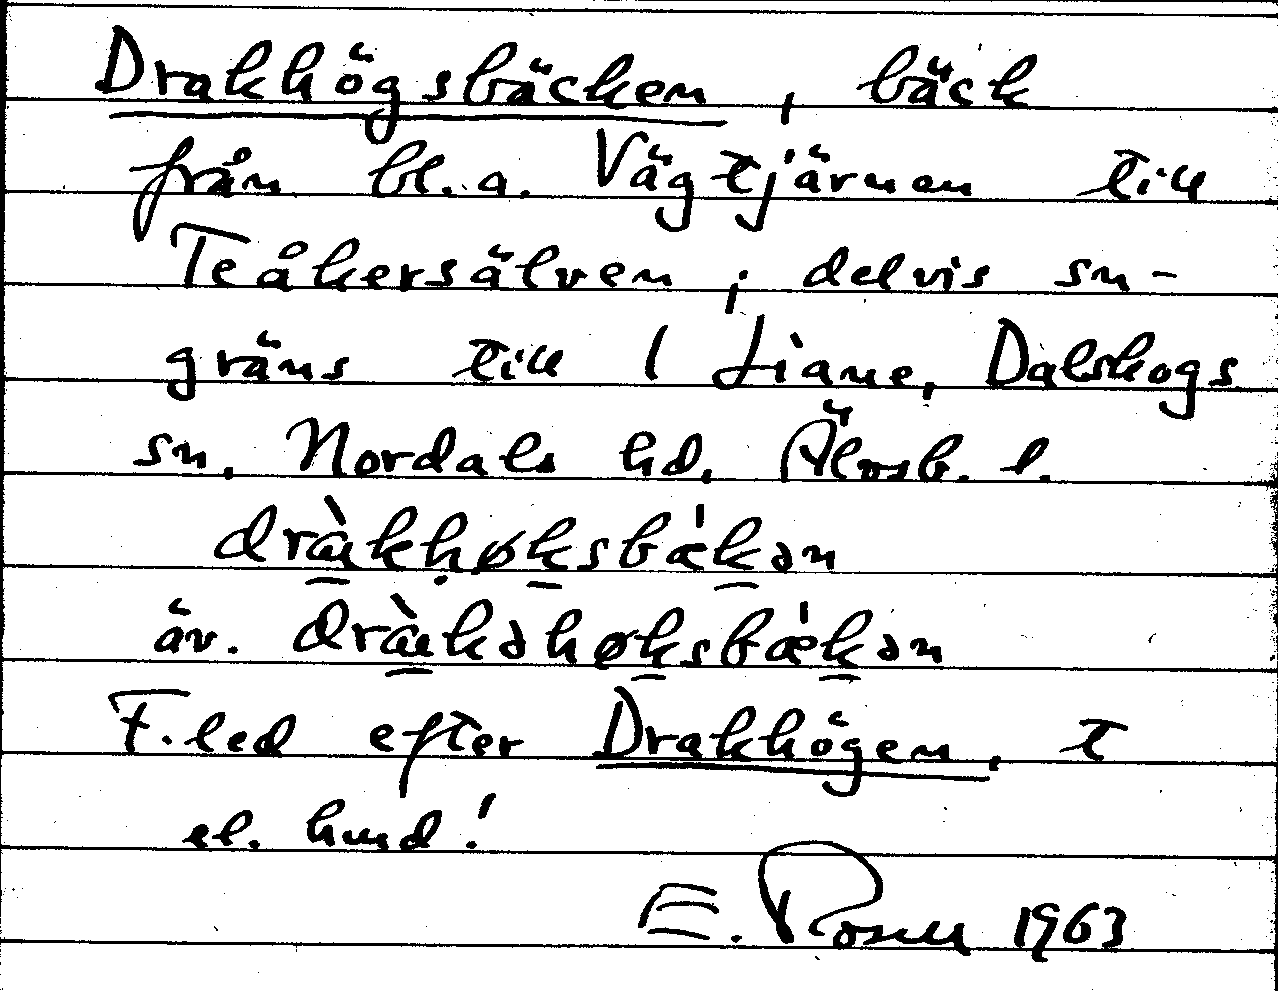 Drakhögsbäcken, bäck
från bl.a. Vägtjärnen till
Teåkersälven; delvis sn-
gräns till 1 Liane, Dalskogs
sn, Nordals hd, Älvsb. l.
dràkhøksbækən
äv. dràkəhøksbækən
F.led efter Drakhögen, t
el. hund!
E. Rosell 1963